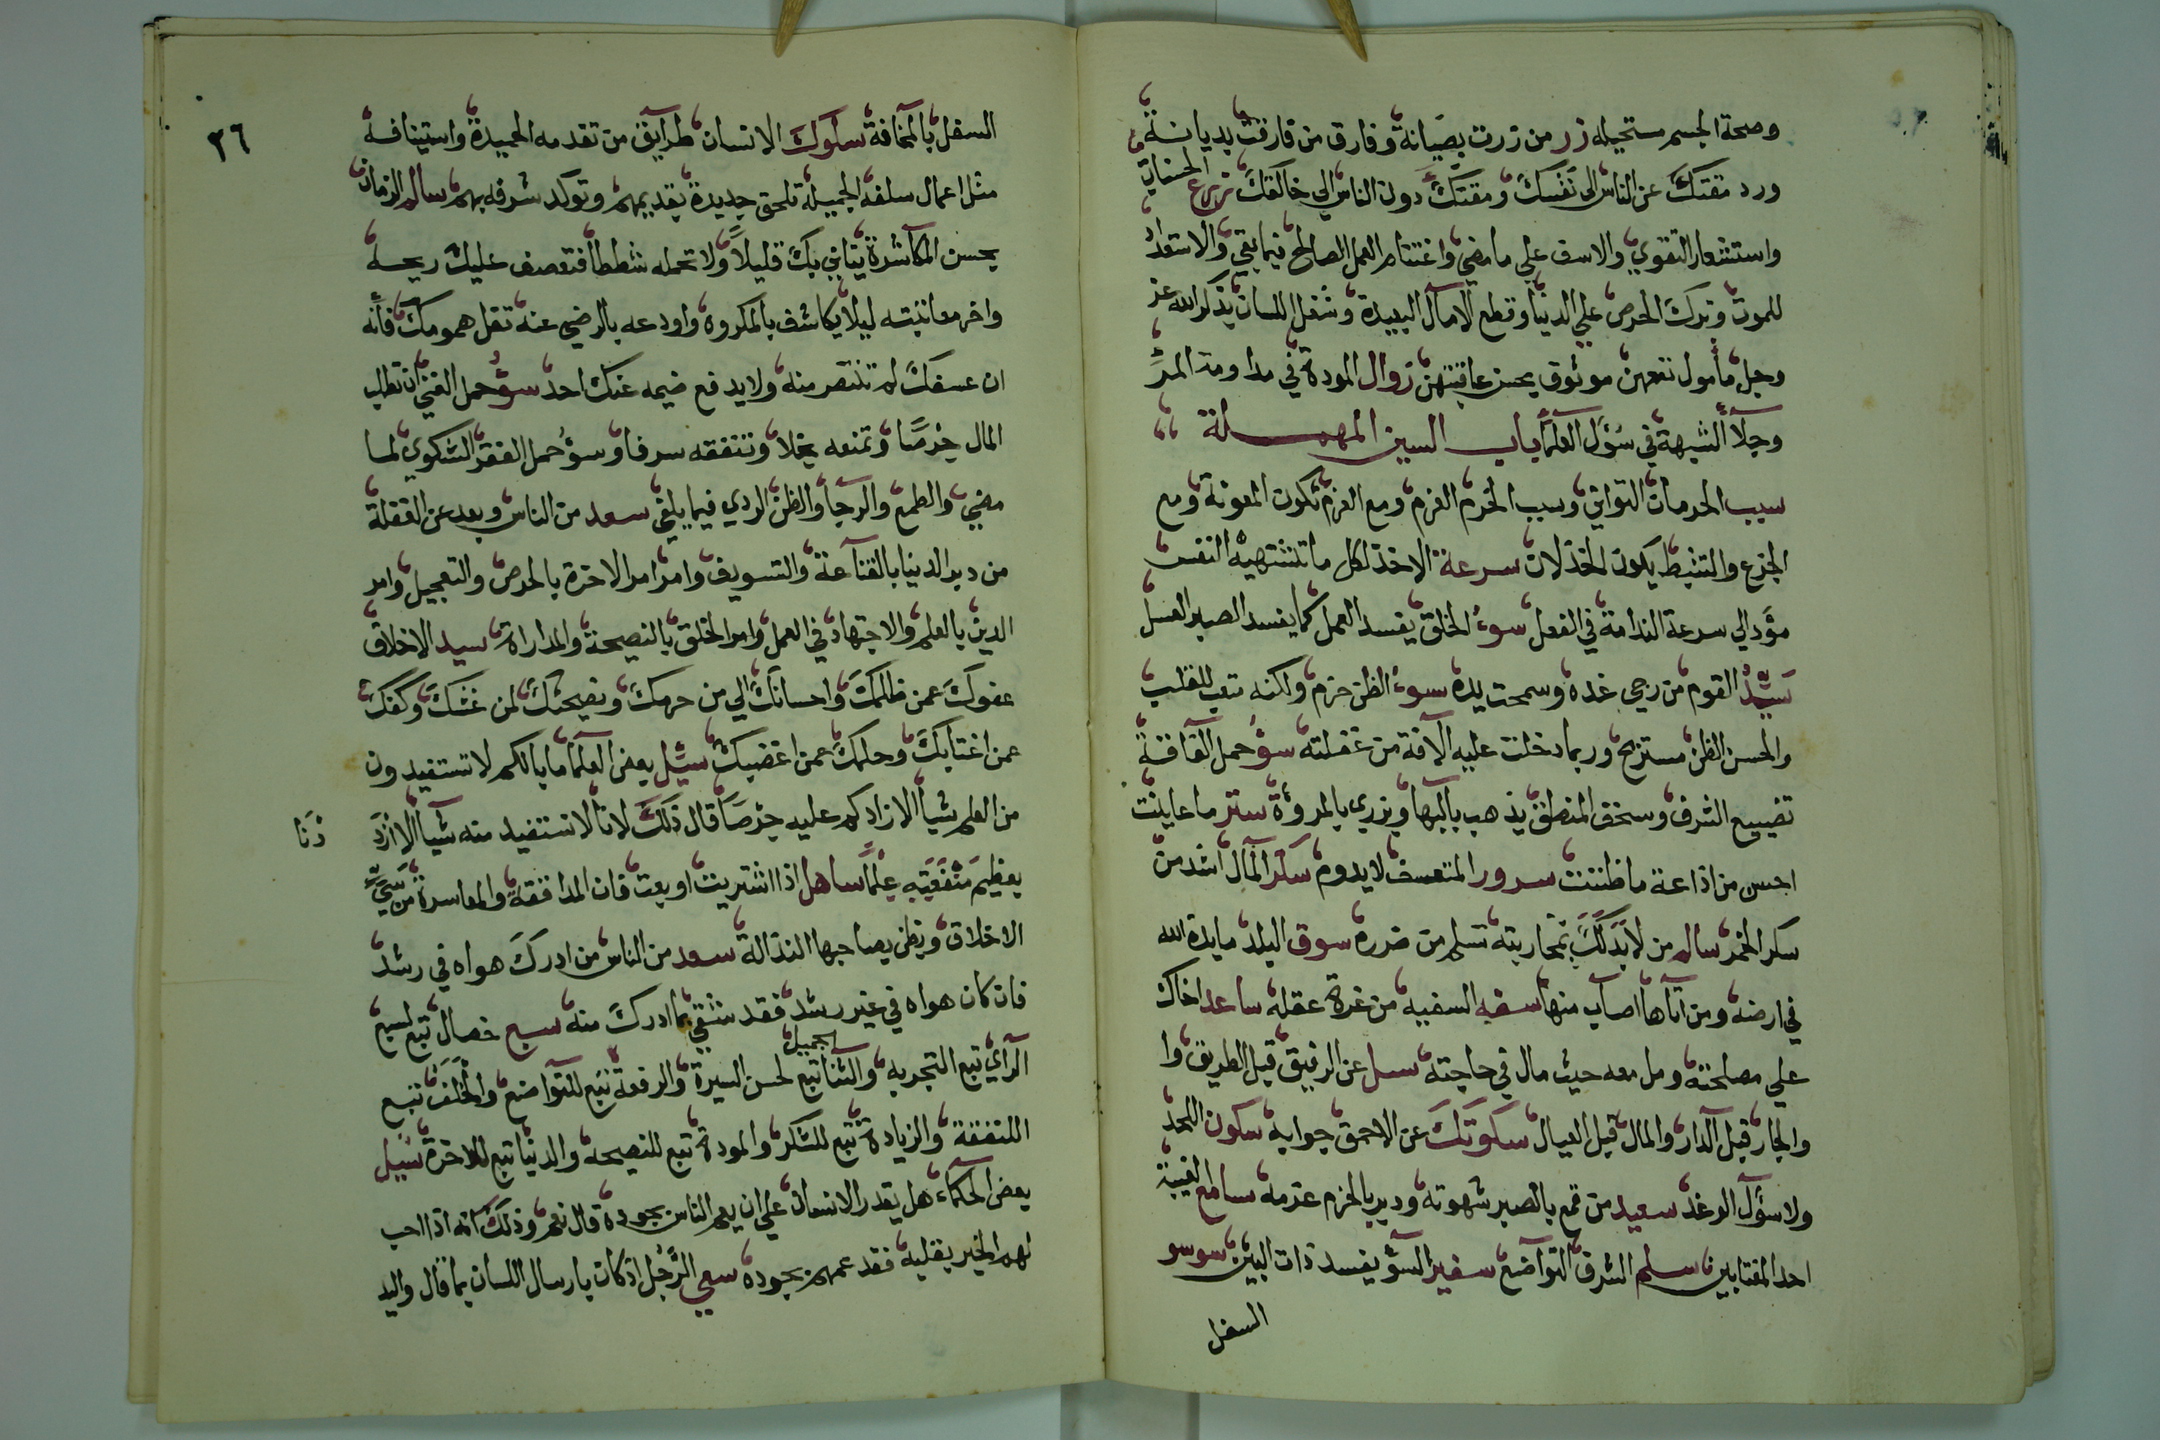 وصحة الجسم مستحيله زر من زرت بصيانة وفارق من فارقت بديانة
ورد مقتك عن الناس الى نفسك ومقتك دون الناس الى خالقك تزرع الحسنات
واستشعار التقوي والاسف علي ما مضي واغتنام العمل الصالح فيما بقي والاستعداد
للموت وترك الحرص علي الدنيا وقطع الامال البعيدة وشغل اللسان بذكر الله عز
وجل مأمول نفعهن موثوق بحسن عاقبتهن زوال المودة في مداومة المرآ
وجلآ الشبهة في سؤل العلمآ باب السين المهملة
سبب الحرمان التواني وسبب الحزم العزم ومع العزم تكون المعونة ومع
الجزع والتثبط يكون الخذلان سرعة الاخذ لكل ما تشتهيه النفس
مؤد الي سرعة الندامة في الفعل سوء الخلق يفسد العمل كما يفسد الصبر العسل
سيد القوم من رجي غده وسمحت يده سوء الظن حزم ولكنه تعب للقلب
والحسن الظن مستريح وربما دخلت عليه الآفة من غفلته سؤ حمل الفاقة
تضييع الشرف وسخف المنطق يذهب بالبها ويزري بالمروة ستر ما عاينت
احسن من اذاعة ما ظننت سرور المتعسف لا يدوم سكر المال اشد من
سكر الخمر سالم من لا بد لك بمحاربته تسلم من ضرره سوق البلد مايدة الله
في ارضه ومن اتاها اصاب منها سفه السفيه من غرة عقله ساعد اخاك
علي مصلحته ومل معه حيث مال في حاجته سل عن الرفيق قبل الطريق وا
والجار قبل الدار والمال قبل العيال سكوتك عن الاحمق جوابه سكون اللحد
ولا سؤل الوغد سعيد من قمع بالصبر شهوته ودبر بالحزم عزمه سامع الغيبة
احد المغتابين سلم الشرف التواضع سفير السؤ يفسد ذات البين سوسو
السفل
٣٦
السفل بالمخافة سلوك الانسان طرايق من تقدمه الحميدة واستينافه
مثل اعمال سلفه الجميلة تلحق جديدة بقديمهم وتوكد شرفه بهم سالم الزمان
بحسن المكاشرة يتاني بك قليلا ولا تحمله شططا فتعصف عليك ريحه
واخر معاتبته ليلا يكاشف بالمكروه واودعه بالرضي عنه تقل همومك فانه
ان عسفك لم تنتصر منه ولا يدفع ضيمه عنك احد سؤ حمل الغني ان تطلب
المال حرصا وتمنعه بخلا وتنفقه سرفا وسؤ حمل الفقر الشكوي لما
مضي والطمع والرجآ والظن الردي فيما يلقي سعد من الناس وبعد عن الغفلة
من دبر الدنيا بالقناعة والتسويف وامر امر الاخرة بالحرص والتعجيل وامر
الدين بالعلم والاجتهاد في العمل وامر الخلق بالنصيحة والمداراة سيد الاخلاق
عفوك عمن ظلمك واحسانك الي من حرمك ونصيحتك لمن غشك وكفك
عمن اغتابك وحلمك عمن اغضبك سئيل بعض العلما ما بالكم لا تستفيدون
من العلم شيأ الا زادكم عليه حرصا قال ذلك لانا لا نستفيد منه شيآ الا ازد
دنا
بعظيم منفعته علما ساهل اذا اشتريت او بعت فان المدافعة والمعاسرة من سيي
الاخلاق ويظن بصاحبها النذالة سعد من الناس من ادرك هواه في رشد
فان كان هواه في غير رشد فقد شقي بما ادرك منه سبع خصال تبع لسبع
الرآي تبع التجربه والثنا الجميل تبع لحسن السيرة والرفعة تبع للتواضع والخلف تبع
اللنفقة والزيادة تبع للشكر والمودة تبع للنصيحة والدنيا تبع للاخرة سيل
بعض الحكماء هل يقدر الانسان علي ان يعم الناس بجوده قال نعم وذلك انه اذا احب
لهم الخير بقلبه فقد عمهم بجوده سعي الرجل اذ كان بارسال اللسان بما قال واليد